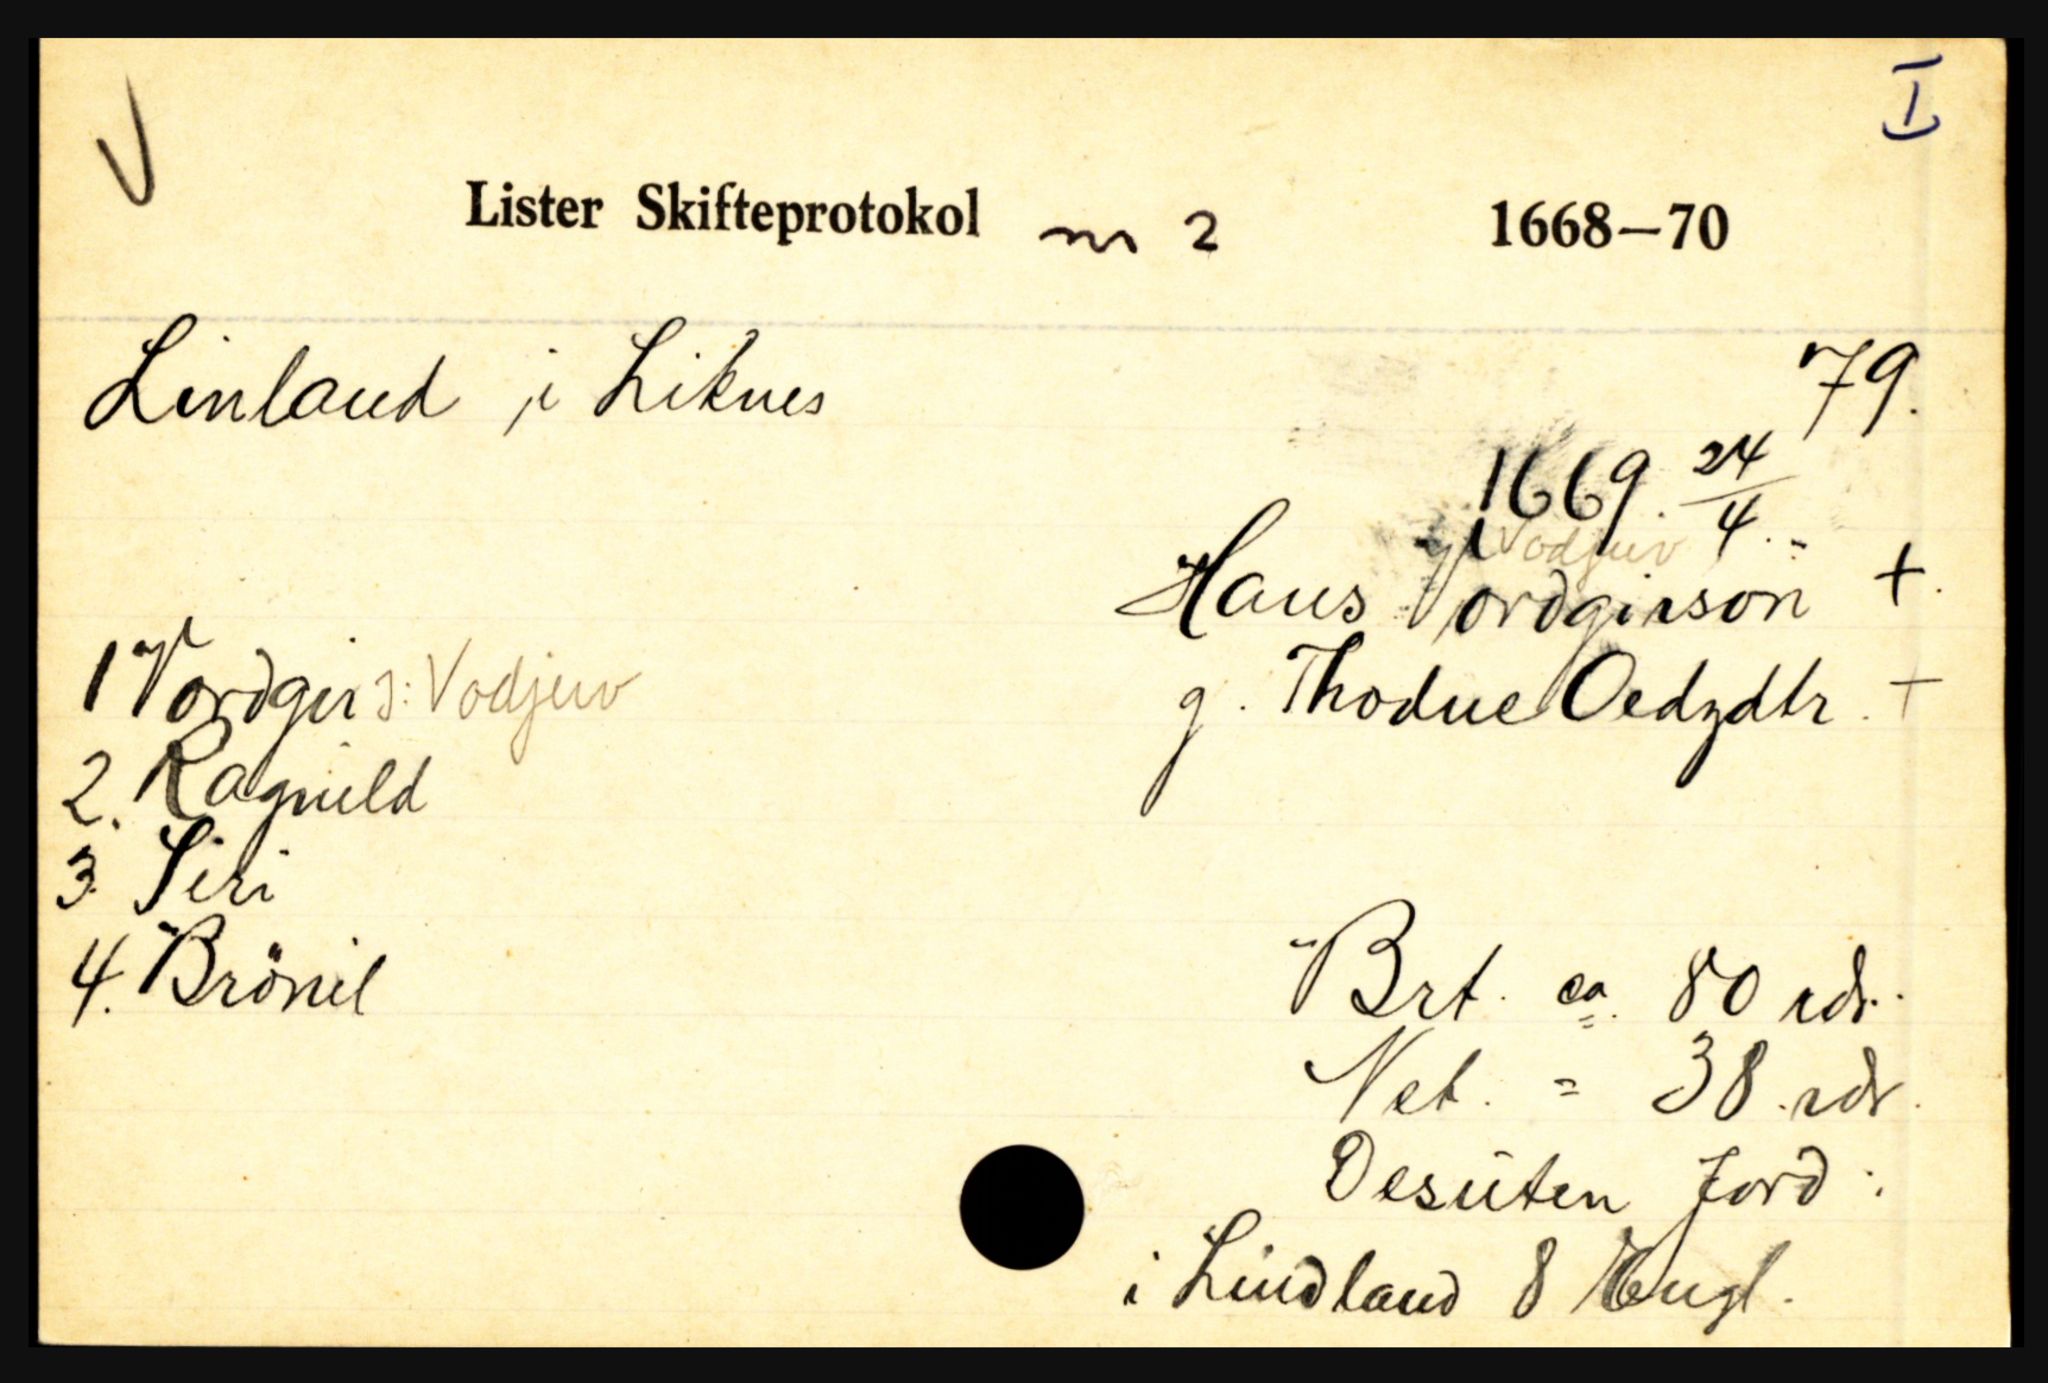 V
I
Lister Skifteprotokol nr 2 1668—70
Linland i Liknes
79.
1669. 24/4.
Vodjuv
Hans Vordgirson +.
g. Thodne Oedzdtr. +
1 Vordgir ɔ: Vodjuv
2. Ragnild
3. Siri
4. Brönil
Brt. ca. 80 rdr.
Net. = 38 rdr.
Desuten Jord:
i Lindland 8 Engl.